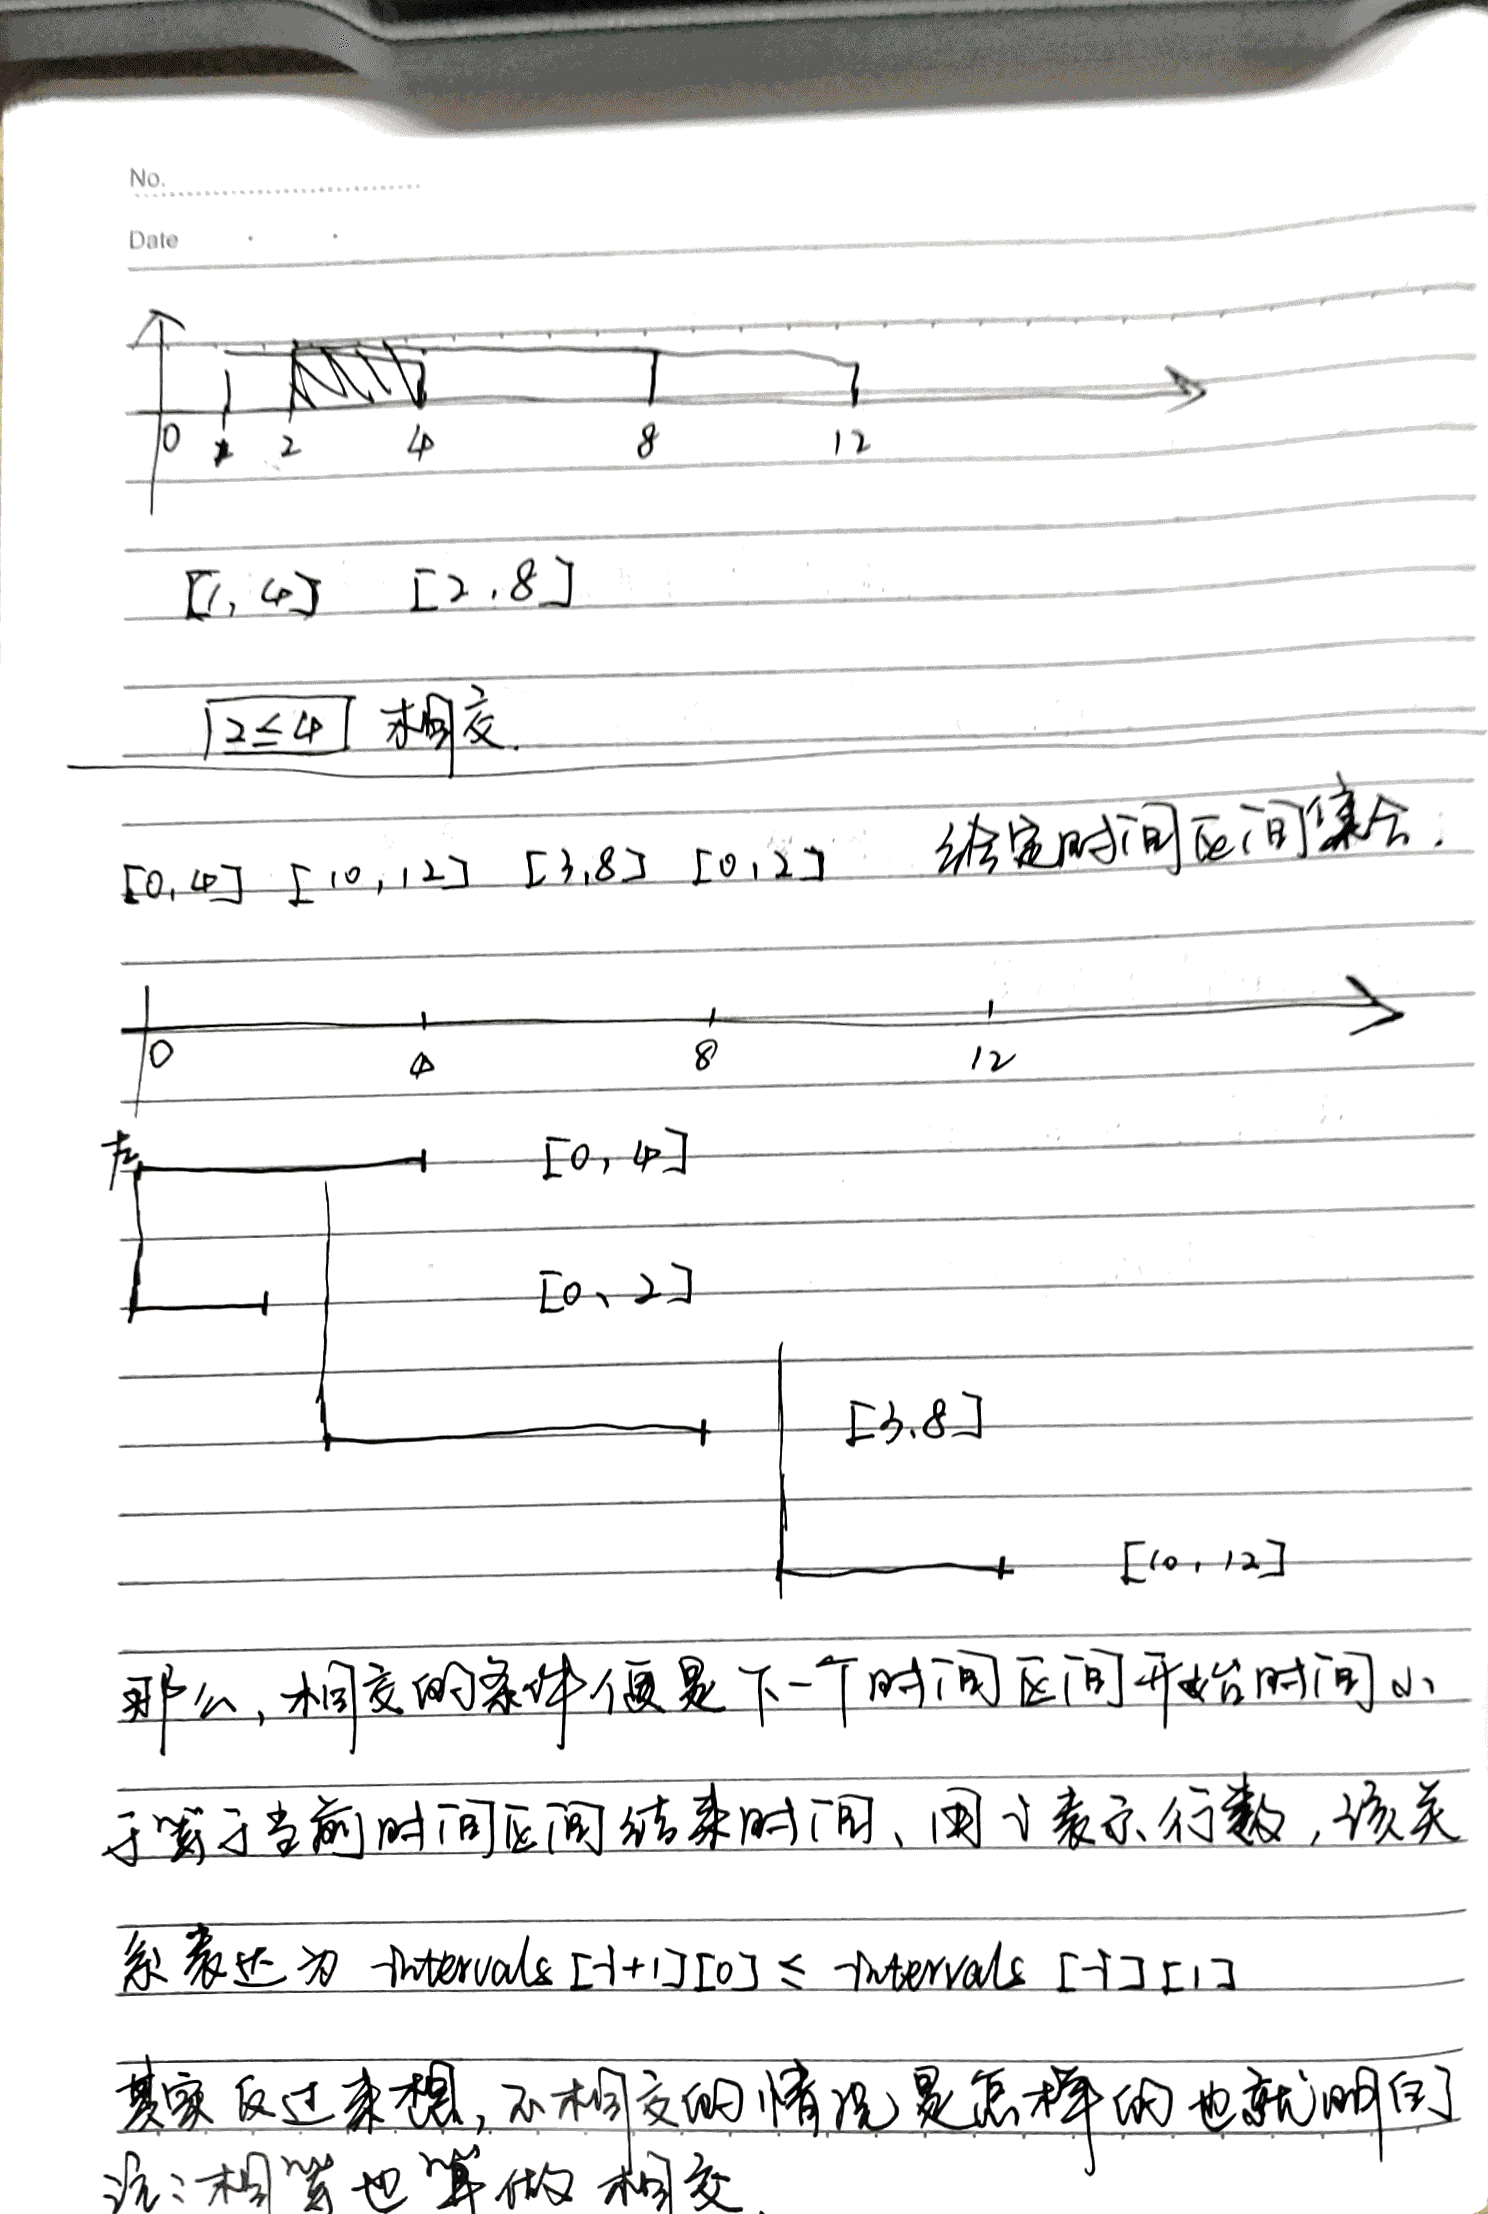 No.
Date
0 1 2 4 8 12
[1, 4] [2, 8]
2≤4 相交.
[0, 4] [10, 12] [3, 8] [0, 2] 给定时间区间集合.
0 4 8 12
左 [0, 4]
[0, 2]
[3, 8]
[10, 12]
那么, 相交的条件便是下一个时间区间开始时间小
于等于当前时间区间结束时间、用i表示行数, 该关
系表达为 intervals [i+1][0] ≤ intervals [i][1]
其实反过来想, 不相交的情况是怎样的也就明白了
注: 相等也算做相交.